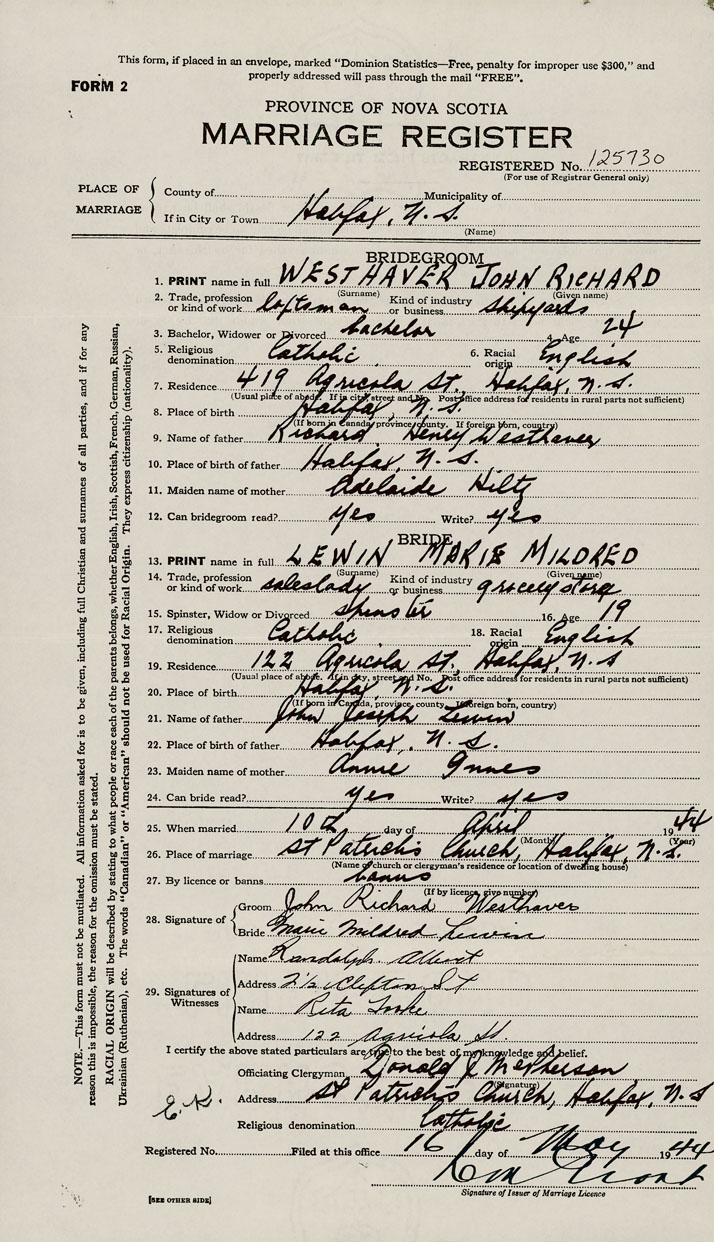 This form, if placed in an envelope, marked "Dominion Statistics—Free, penalty for improper use $300," and
properly addressed will pass through the mail "FREE".
FORM 2
PROVINCE OF NOVA SCOTIA
MARRIAGE REGISTER
REGISTERED No. 125730
(For use of Registrar General only)
PLACE OF MARRIAGE
County of Municipality of
If in City or Town Halifax, N.S.
(Name)
BRIDEGROOM
1. PRINT name in full WESTHAVER JOHN RICHARD
(Surname) (Given name)
2. Trade, profession or kind of work loftsman Kind of industry or business shipyards
3. Bachelor, Widower or Divorced bachelor 4. Age 24
5. Religious denomination Catholic 6. Racial origin English
7. Residence 419 Agricola St., Halifax, N.S.
(Usual place of abode. If in city, street and No. Post office address for residents in rural parts not sufficient)
8. Place of birth Halifax, N.S.
(If born in Canada, province, county. If foreign born, country)
9. Name of father Richard Henry Westhaver
10. Place of birth of father Halifax, N.S.
11. Maiden name of mother Adelaide Hiltz
12. Can bridegroom read? yes Write? yes
BRIDE
13. PRINT name in full LEWIN MARIE MILDRED
(Surname) (Given name)
14. Trade, profession or kind of work saleslady Kind of industry or business grocery store
15. Spinster, Widow or Divorced spinster 16. Age 19
17. Religious denomination Catholic 18. Racial origin English
19. Residence 122 Agricola St., Halifax, N.S
(Usual place of abode. If in city, street and No. Post office address for residents in rural parts not sufficient)
20. Place of birth Halifax, N.S.
(If born in Canada, province, county. If foreign born, country)
21. Name of father John Joseph Lewin
22. Place of birth of father Halifax, N.S.
23. Maiden name of mother Annie Innes
24. Can bride read? yes Write? yes
25. When married 10th day of April 1944
(Month) (Year)
26. Place of marriage St Patrick's Church, Halifax, N.S.
(Name of church or clergyman's residence or location of dwelling house)
27. By licence or banns banns
(If by licence, give number)
28. Signature of
Groom John Richard Westhaver
Bride Marie Mildred Lewin
29. Signatures of Witnesses
Name Randolph
Address 2½ Clifton St
Name Rita
Address 122 Agricola St.
I certify the above stated particulars are true to the best of my knowledge and belief.
Officiating Clergyman Donald J McPherson
(Signature)
Address St Patrick's Church, Halifax, N.S
E.K.
Religious denomination Catholic
Registered No. Filed at this office 16 day of May 1944
Signature of Issuer of Marriage Licence
[SEE OTHER SIDE]
NOTE.—This form must not be mutilated. All information asked for is to be given, including full Christian and surnames of all parties, and if for any
reason this is impossible, the reason for the omission must be stated.
RACIAL ORIGIN will be described by stating to what people or race each of the parents belongs, whether English, Irish, Scottish, French, German, Russian,
Ukrainian (Ruthenian), etc. The words "Canadian" or "American" should not be used for Racial Origin. They express citizenship (nationality).